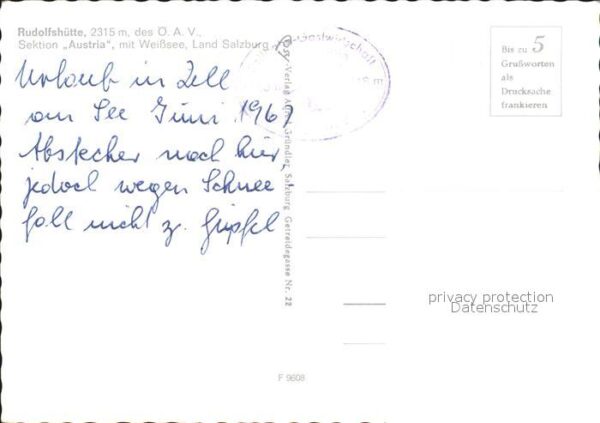 Rudolfshütte, 2315 m, des Ö. A. V.,
Sektion „Austria“, mit Weißsee, Land Salzburg
Urlaub in Zell
am See Juni 1967
Abstecher nach hier,
jedoch wegen Schnee
fall nicht z. Gipfel
Gastwirtschaft
Gründler, Salzburg, Getreidegasse Nr. 22
Bis zu 5
Grußworten
als
Drucksache
frankieren
privacy protection
Datenschutz
F 9608